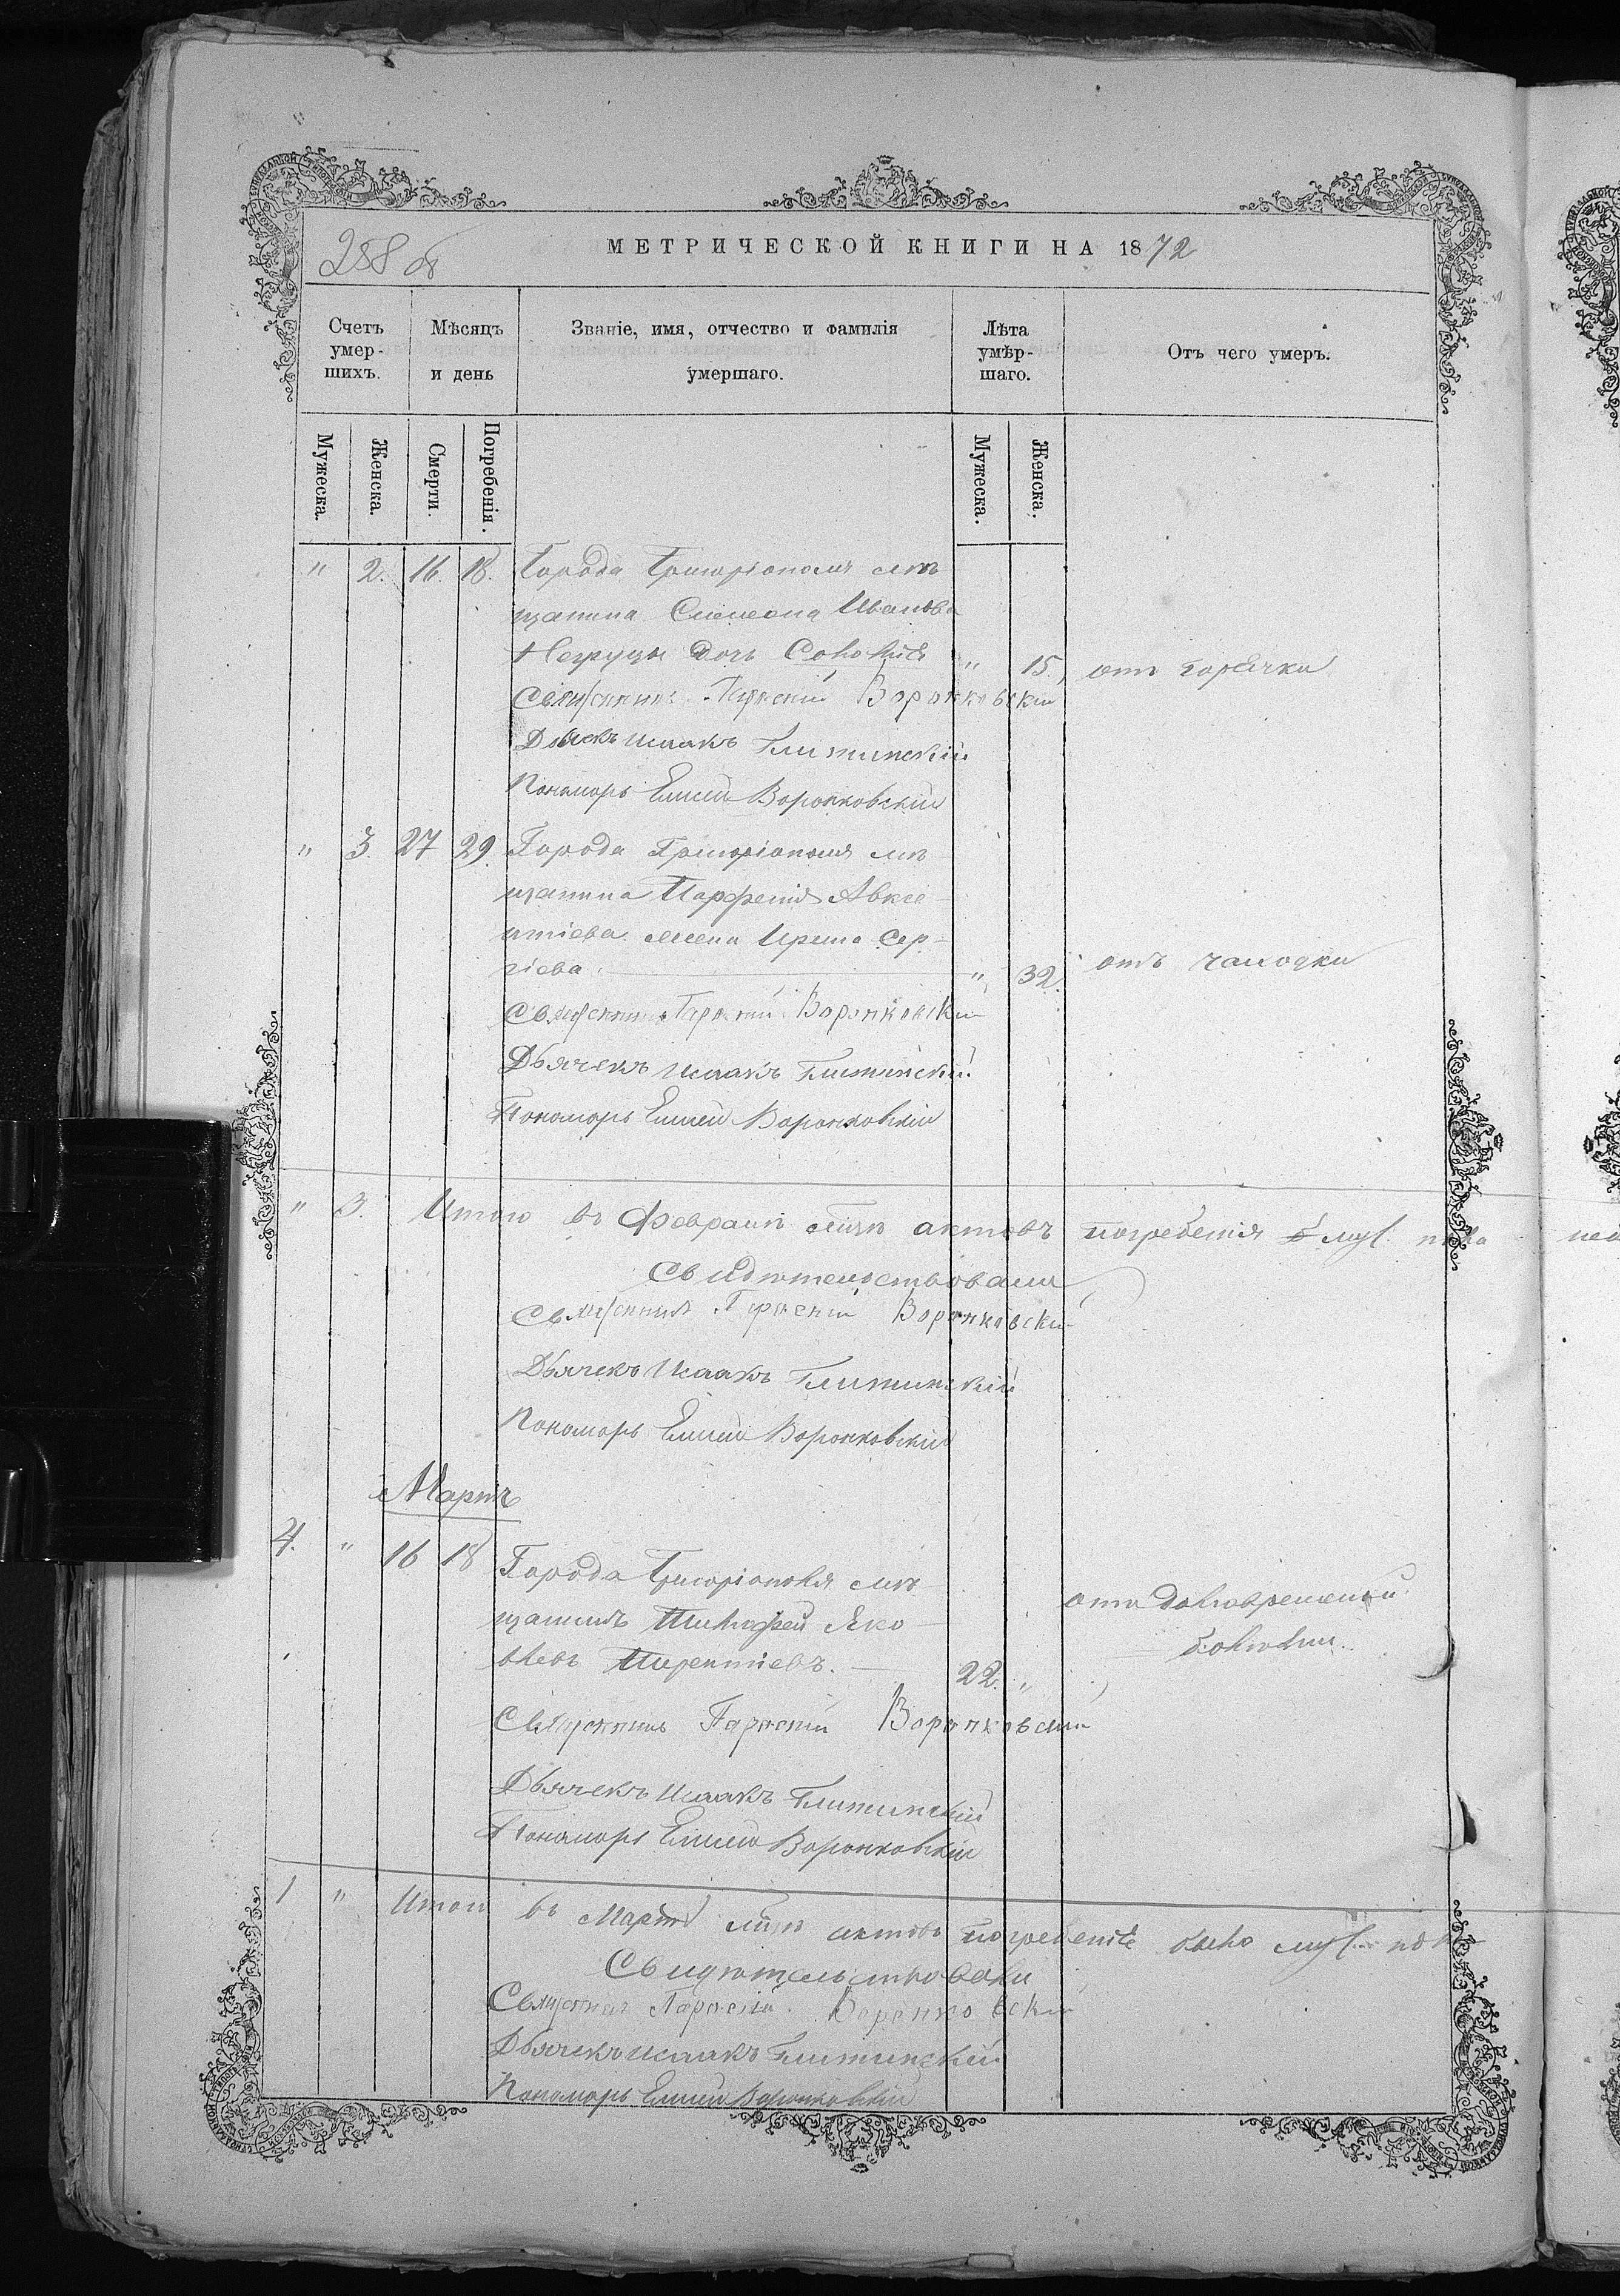 288 об
МЕТРИЧЕСКОЙ КНИГИ НА 1872
Счетъ умер-шихъ.
Мѣсяцъ и день
Званіе, имя, отчество и фамилія умершаго.
Лѣта умѣр-шаго.
Отъ чего умеръ.
Мужеска.
Женска.
Смерти.
Погребенія.
Мужеска.
Женска.
" 2. 16. 18. Города Григоріополя мѣ
щанина Симеона Иванова
Негруцы дочь Софія " 15. отъ горячки
Священникъ Воронковскій
Дьячекъ Исаакъ
Пономарь Елисей Воронковскій
" 3. 27 29. Города Григоріополя мѣ
щанина Парфенія Авксе
нтіева жена Ирина Сер-
гіева " 32. отъ чахотки
Священникъ Воронковскій
Дьячекъ Исаакъ
Пономарь Елисей Воронковскій
" 3. Итого въ Февралѣ м-цѣ актовъ погребенія муж. пола
Свидѣтельствовали
Священникъ Воронковскій
Дьячекъ Исаакъ
Пономарь Елисей Воронковскій
Мартъ
4. " 16 18 Города Григоріополя мѣ
щанинъ Тимофей Яко
влевъ 22. " отъ долговременной
болѣзни.
Священникъ Воронковскій
Дьячекъ Исаакъ
Пономарь Елисей Воронковскій
1 " Итого въ Мартѣ м-цѣ актовъ погребенія было муж. пола
Свидѣтельствовали
Священникъ Воронковскій
Дьячекъ Исаакъ
Пономарь Елисей Воронковскій